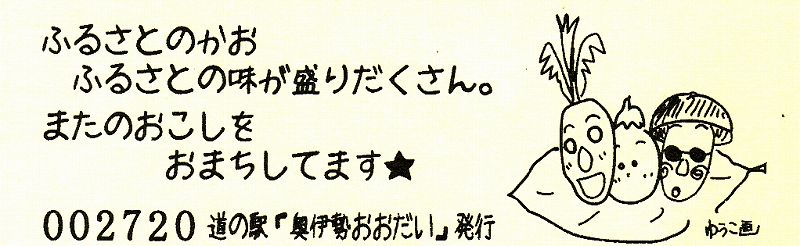 ふるさとのかお
ふるさとの味が盛りだくさん。
またのおこしを
おまちしてます★
002720 道の駅『奥伊勢おおだい』発行
ゆうこ画